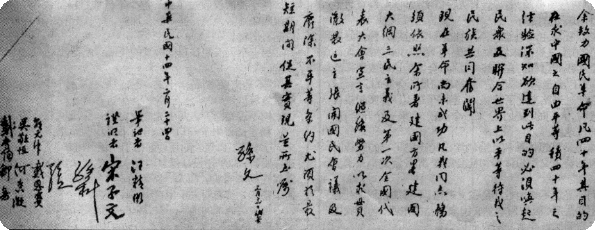 余致力國民革命凡四十年其目的
在求中國之自由平等積四十年之
經驗深知欲達到此目的必須喚起
民眾及聯合世界上以平等待我之
民族共同奮鬪
現在革命尚未成功凡我同志務
須依照余所著建國方畧建國
大綱三民主義及第一次全國代
表大會宣言繼續努力以求貫
徹最近主張開國民會議及
廢除不平等條約尤須於最
短期間促其實現是所至囑
孫文
中華民國十四年二月二十四
筆記者 汪精衛
證明者 宋子文
孫科
戴恩賽
吳敬恆 何香凝
戴季陶 鄒魯